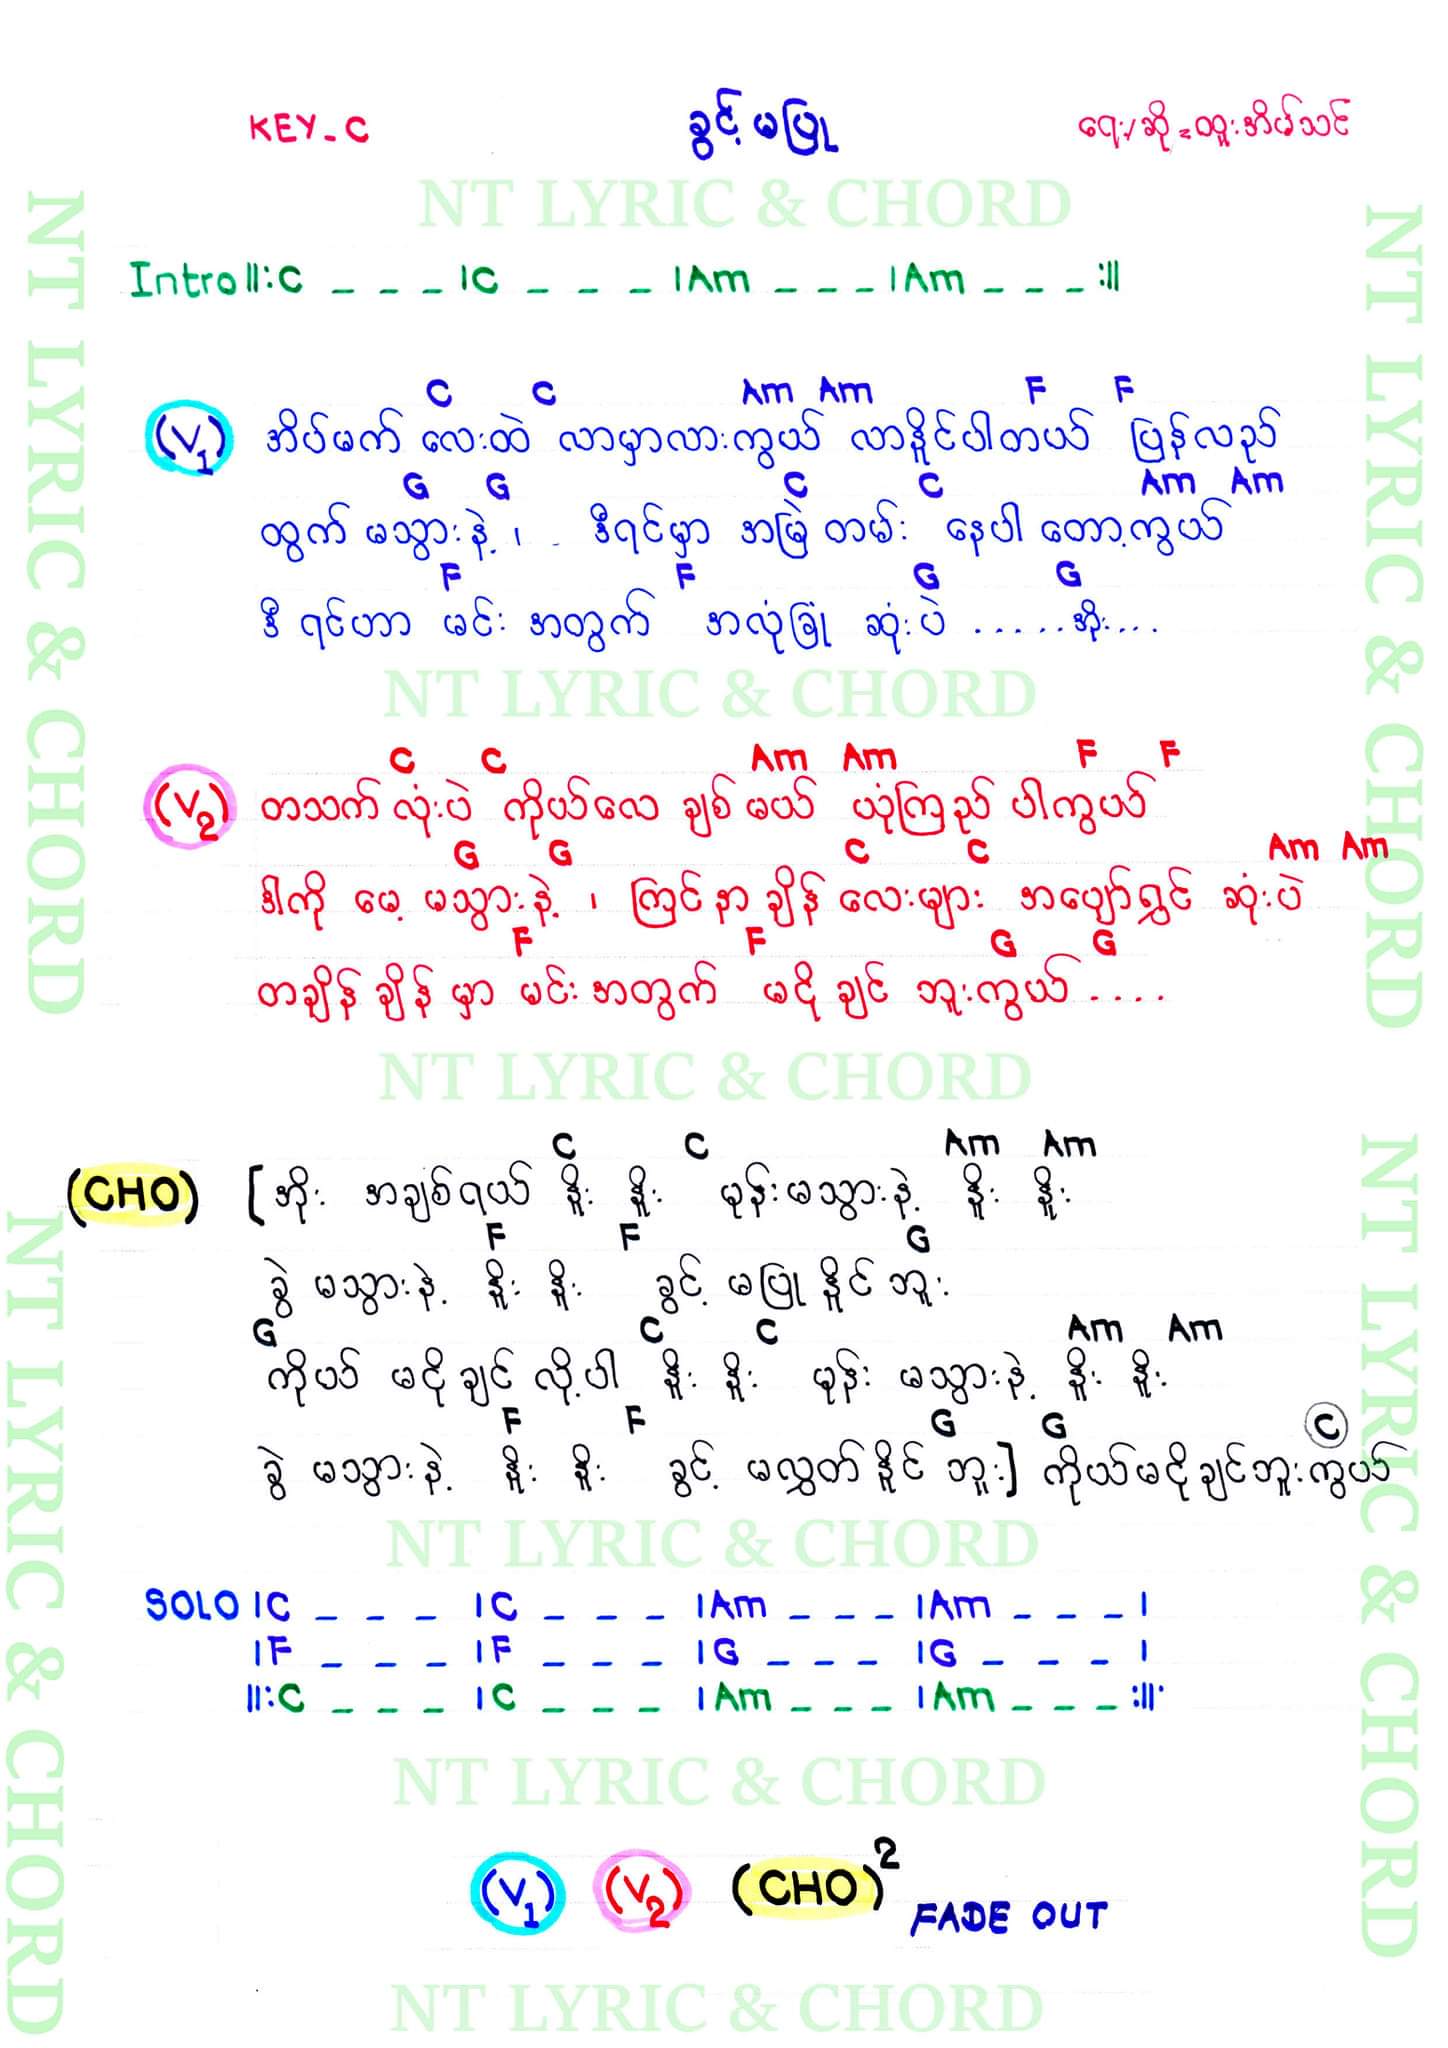 KEY - C
ခွင့်မပြု
ရေး/ဆို = ထူးအိမ်သင်
NT LYRIC & CHORD
Intro ||: C _ _ _ | C _ _ _ | Am _ _ _ | Am _ _ _ :||
C C Am Am F F
(V1) အိပ်မက် လေးထဲ လာမှာလားကွယ် လာနိူင်ပါတယ် ပြန်လည်
G G C C Am Am
ထွက် မသွားနဲ့ ၊ ဒီရင်မှာ အမြဲ တမ်း နေပါ တော့ကွယ်
F F G G
ဒီ ရင်ဟာ မင်း အတွက် အလုံခြုံ ဆုံးပဲ ......အိုး...
NT LYRIC & CHORD
C C Am Am F F
(V2) တသက် လုံးပဲ ကိုယ်လေ ချစ် မယ် ယုံကြည် ပါကွယ်
G G C C Am Am
ဒါကို မေ့ မသွားနဲ့ ၊ ကြင်နာ ချိန် လေးများ အပျော်ရွှင် ဆုံးပဲ
F F G G
တချိန် ချိန် မှာ မင်းအတွက် မငို ချင် ဘူးကွယ် ....
NT LYRIC & CHORD
C C Am Am
(CHO) [ အိုး အချစ်ရယ် နိူး နိူး မုန်းမသွားနဲ့ နိူး နိူး
F F G
ခွဲ မသွားနဲ့ နိူး နိူး ခွင့် မပြု နိူင် ဘူး
G C C Am Am
ကိုယ် မငို ချင် လို့ပါ နိူး နိူး မုန်း မသွားနဲ့ နိူး နိူး
F F G G C
ခွဲ မသွားနဲ့ နိူး နိူး ခွင့် မလွှတ် နိူင် ဘူး ] ကိုယ်မငိုချင်ဘူးကွယ်
NT LYRIC & CHORD
SOLO | C _ _ _ | C _ _ _ | Am _ _ _ | Am _ _ _ |
| F _ _ _ | F _ _ _ | G _ _ _ | G _ _ _ |
||: C _ _ _ | C _ _ _ | Am _ _ _ | Am _ _ _ :||
NT LYRIC & CHORD
(V1) (V2) (CHO)2 FADE OUT
NT LYRIC & CHORD
NT LYRIC & CHORD
NT LYRIC & CHORD
NT LYRIC & CHORD
NT LYRIC & CHORD